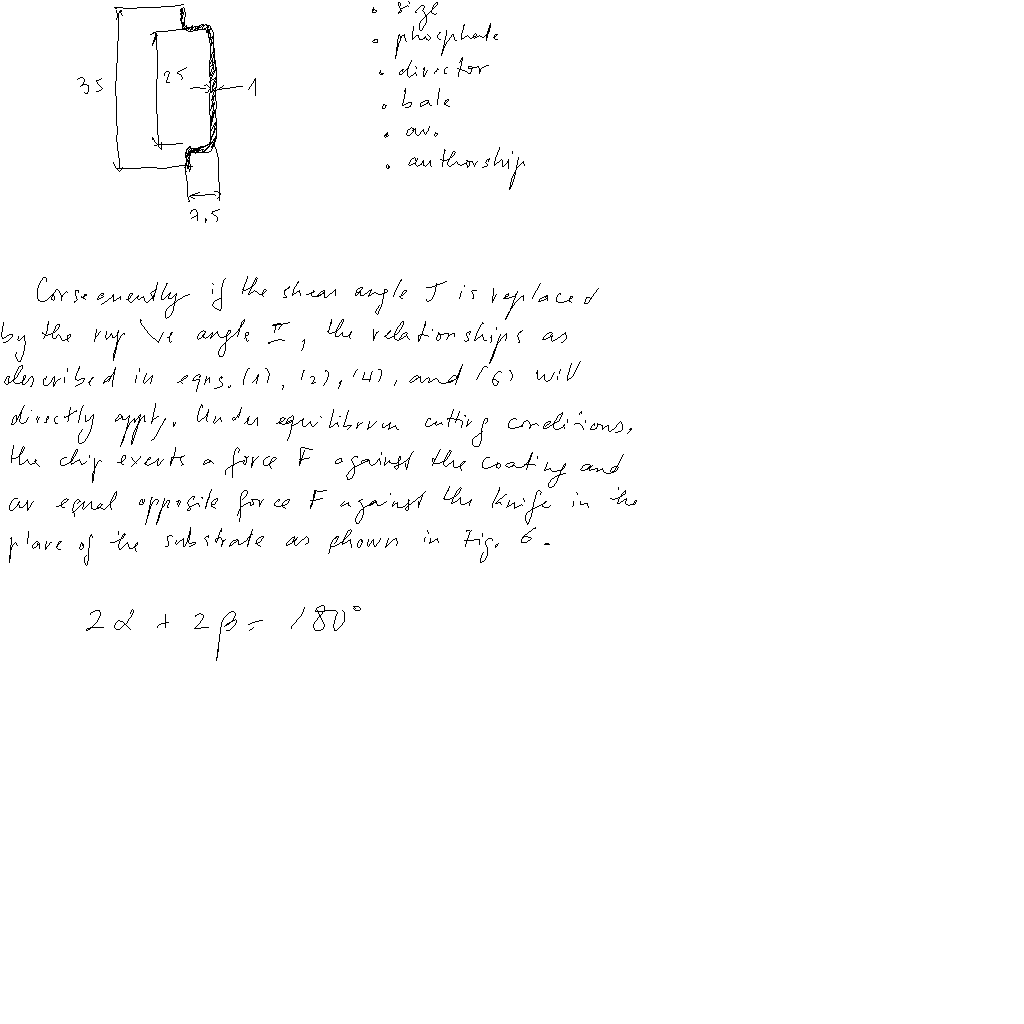 35
25
1
7,5
• size
• phosphate
• director
• bale
• av.
• authorship
Consequently if the shear angle J is replaced
by the angle II, the relationships as
described in eqns. (1), (2), (4), and (6) will
directly apply. Under equilibrium cutting conditions,
the chip exerts a force F against the coating and
an equal opposite force F against the knife in the
plane of the substrate as shown in Fig. 6.
2α + 2β = 180°